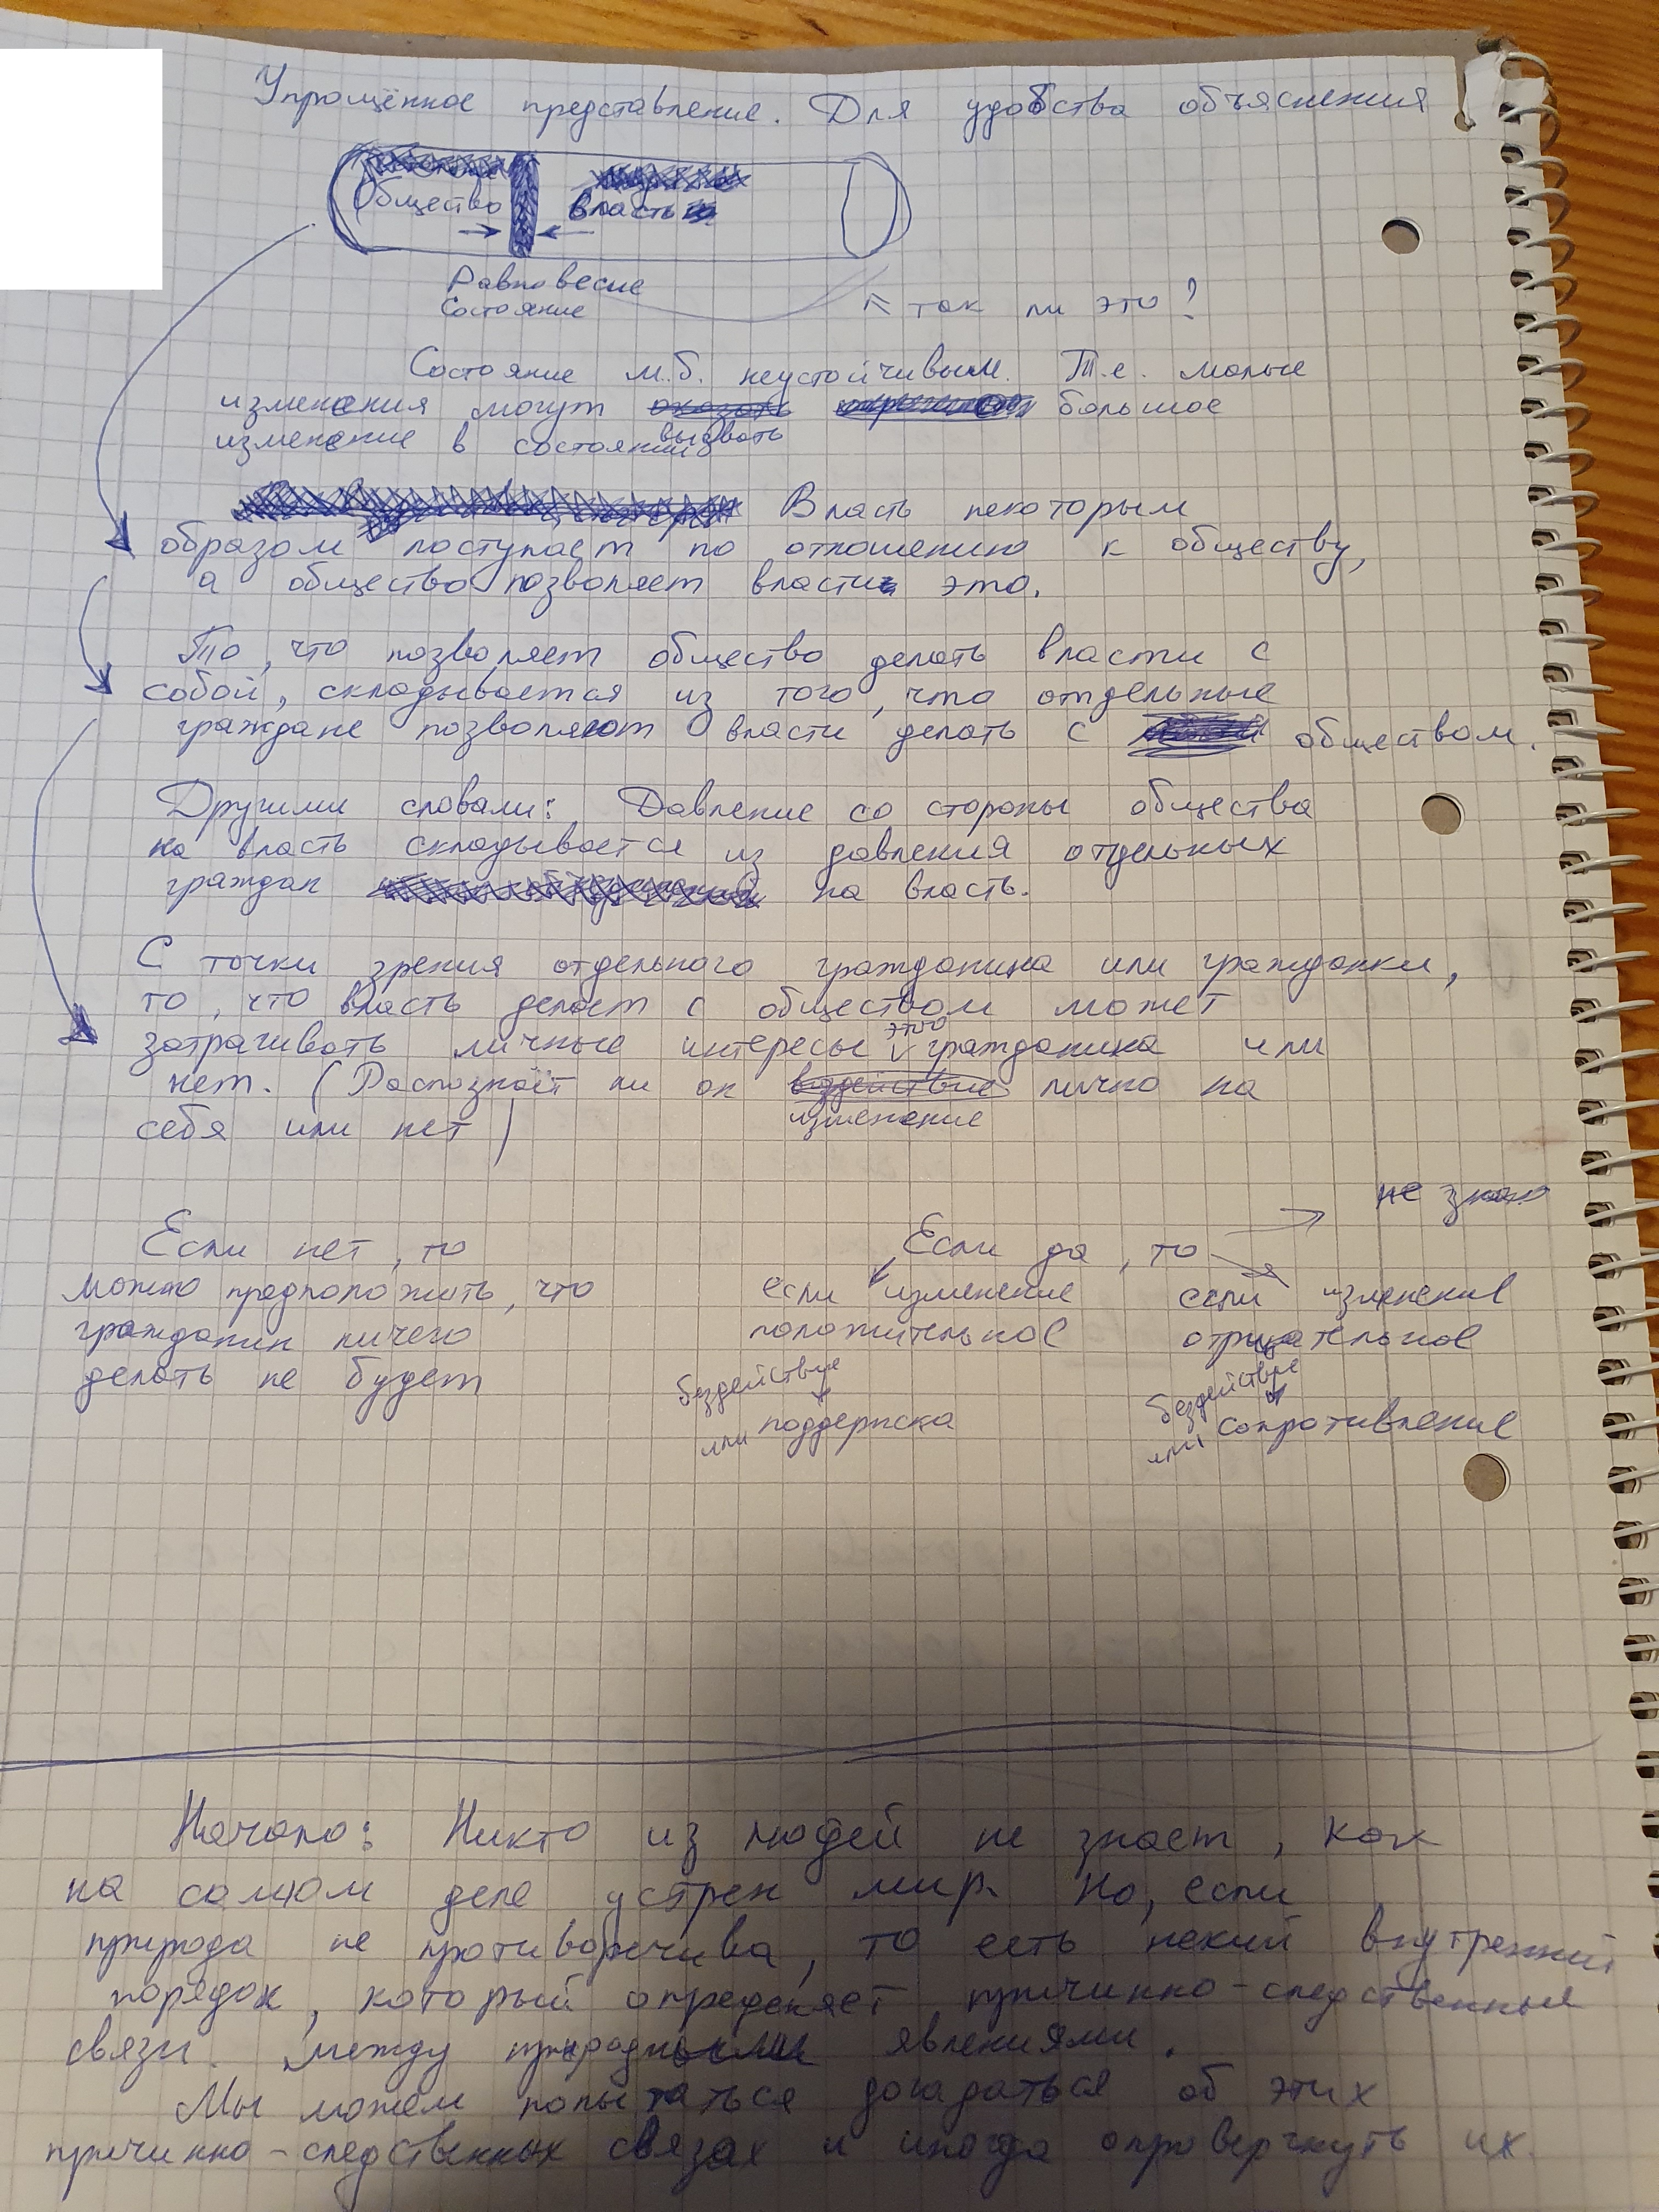 Упрощённое представление. Для удобства объяснения
Общество власть
Равновесие
Состояние
так ли это?
Состояние м.б. неустойчивым. Т.е. малые
изменения могут оказать большое
вызвать
изменение в состоянии
Власть некоторым
образом поступает по отношению к обществу,
а общество позволяет власти это.
То, что позволяет общество делать власти с
собой, складывается из того, что отдельные
граждане позволяют власти делать с обществом.
Другими словами: Давление со стороны общества
на власть складывается из давления отдельных
граждан на власть.
С точки зрения отдельного гражданина или гражданки,
то, что власть делает с обществом может
затрагивать личные интересы этого гражданина или
нет. (Распознаёт ли он воздействие лично на
изменение
себя или нет)
не знаю
Если нет, то
можно предположить, что
гражданин ничего
делать не будет
Если да, то
если изменение
положительное
бездействие
или поддержка
если изменение
отрицательное
бездействие
или сопротивление
Начало: Никто из людей не знает, как
на самом деле устрен мир. Но, если
природа не противоречива, то есть некий внутренний
порядок, который определяет причинно-следственные
связи между природными явлениями.
Мы можем попытаться догадаться об этих
причинно-следственных связах и иногда опровергнуть их.